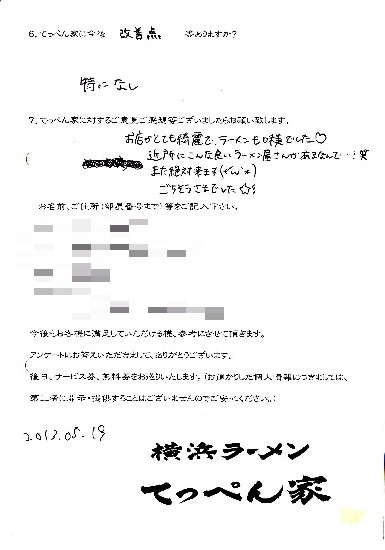 6. てっぺん家に今後 改善点 等ありますか?
特になし
7. てっぺん家に対するご意見ご感想等ございましたらお願い致します。
お店がとても綺麗で、ラーメンも
近所にこんな良いラーメン屋さんがあるなんて…!笑
また絶対来ます(*'ω'*)
ごちそうさまでした☆!
お名前、ご住所(部屋番号まで)等をご記入下さい。
今後もお客様に満足していただける様、参考にさせて頂きます。
アンケートにお答えいただきまして、ありがとうございます。
後日、サービス券、無料券をお送りいたします。(お預かりした個人情報につきましては、
第三者に開示・提供することはございませんのでご安心ください。)
2013.05.19
横浜ラーメン
てっぺん家